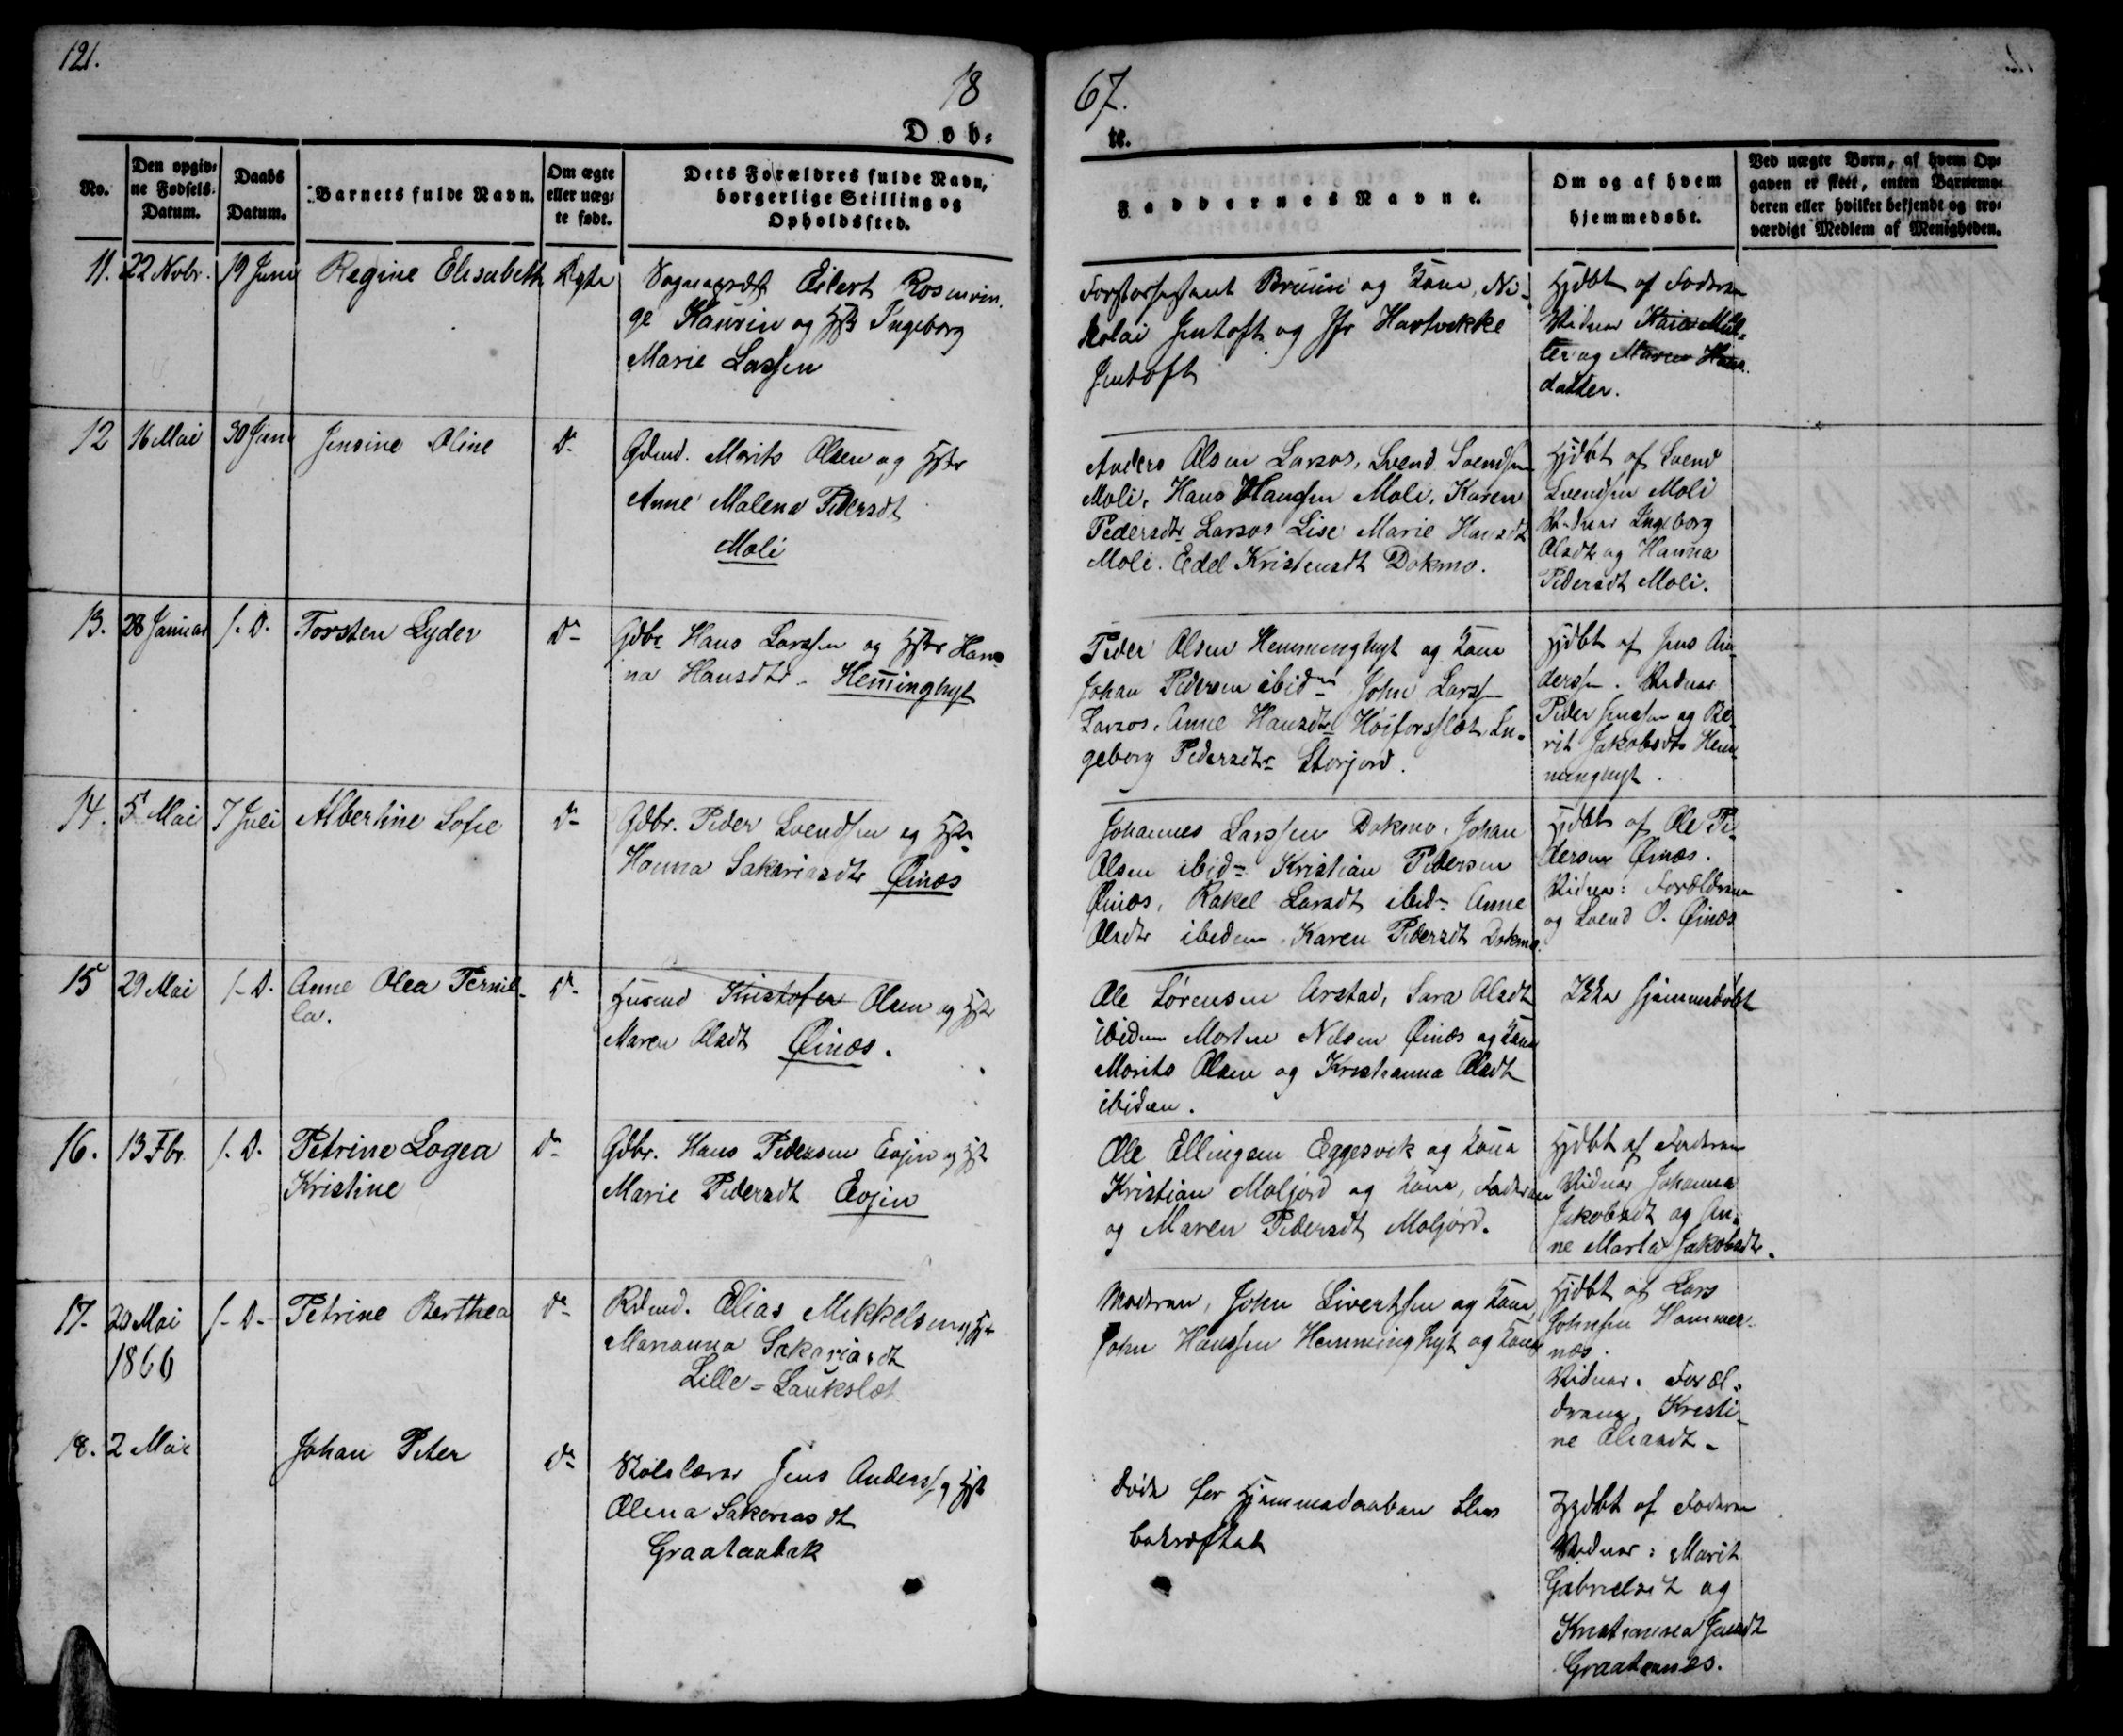 121.
18
67.
Døb-
te.
No.
Den opgiv-
ne Fødsels-
Datum.
Daabs
Datum.
Barnets fulde Navn.
Om ægte
eller uæg-
te født.
Dets Forældres fulde Navn,
borgerlige Stilling og
Opholdssted.
Faddernes Navne.
Om og af hvem
hjemmedøbt.
Ved uægte Børn, af hvem Op-
gaven er skeet, enten Barnemo-
deren eller hvilket bekjendt og tro-
værdigt Medlem af Menigheden.
11. 22 Novbr. 19 Juni Regine Elisabeth Ægte
Sognepræst Eilert Rosenvin-
ge Kaurin og Hstr Ingeborg
Marie Lassen
Bruun og Kone, Ni-
kolai Jentoft og Jfr Hartvikke
Jentoft
Hjdbt af Faderen
Vidner Karen Mül-
ler og Maren Hans-
datter.
12 16 Mai 30 Juni Jensine Oline do
Gdmd. Morits Olsen og Hstr
Anne Malena Pedersdt
Moli
Anders Olsen Larsos, Svend Svendsen
Moli, Hans Hansen Moli, Karen
Pedersdtr Larsos Lise Marie Hansdt
Moli. Edel Kristensdt Dokmo.
Hjdbt af Svend
Svendsen Moli
Vidner Ingeborg
Olsdtr og Hanna
Pedersdt Moli.
13. 28 Januar s. D. Torsten Lyder do
Gdbr Hans Larssen og Hstr Han-
na Hansdtr - Hemminghyt
Peder Olsen Hemminghyt og Kone
Johan Pedersen ibidm John Larssen
Larsos, Anne Hansdtr Høiforsslet In-
geborg Pedersdtr Storjord.
Hjdbt af Jens An-
derssen. Vidner
Peder Jenssen og Be-
rit Jakobsdtr Hem-
minghyt.
14. 5 Mai 7 Juli Albertine Sofie do
Gdbr. Peder Svendsen og Hstr
Hanna Sakariasdtr Øinæs
Johannes Larssen Dokmo, Johan
Olsen ibidm Kristian Pedersen
Øinæs, Rakel Larsdt ibidm Anne
Olsdtr ibidem. Karen Pedersdt Dokmo.
Hjdbt af Ole Pe-
dersen Øinæs.
Vidner: Forældrene
og Svend O. Øinæs
15 29 Mai s. D. Anne Olea Pernil-
la. do
Husmd Kristofer Olsen og Hstr
Maren Olsdt Øinæs.
Ole Sørensen Arstad, Sara Olsdt
ibidem Morten Nilsen Øinæs og Kone
Morits Olsen og Kristianna Olsdt
ibidem.
Ikke hjemmedøbt
16. 13 Fbr. s. D. Petrine Logea
Kristine do
Gdbr. Hans Pedersen Evjen og Hst
Marie Pedersdt Evjen
Ole Ellingsen Eggesvik og Kone
Kristian Moljord og Kone, Faderen
og Maren Pedersdt Moljord.
Hjdbt af Faderen
Vidner Johanna
Jakobsdt og An-
ne Marta Jakobsdtr.
17. 20 Mai
1866 s. D. Petrine Berthea do
Rdmd. Elias Mikkelsen og Hst
Marianna Sakariasdt
Lille-Laukslet
Moderen, John Sivertsen og Kone
John Hanssen Hemminghyt og Kone
Hjdbt af Lars
Johnsen Hammer-
næs.
Vidner. Foræl-
drene, Kristi-
ne Eliasdt.
18. 2 Mai Johan Peter do
Skolelærer Jens Anderss. og Hst
Olena Sakariasdt
Graataabak
Døde før Hjemmedaaben blev
bekræftet
Hjdbt af Faderen
Vidner: Marit
Gabrielsdt og
Kristianna Jensdt
Graatannes.